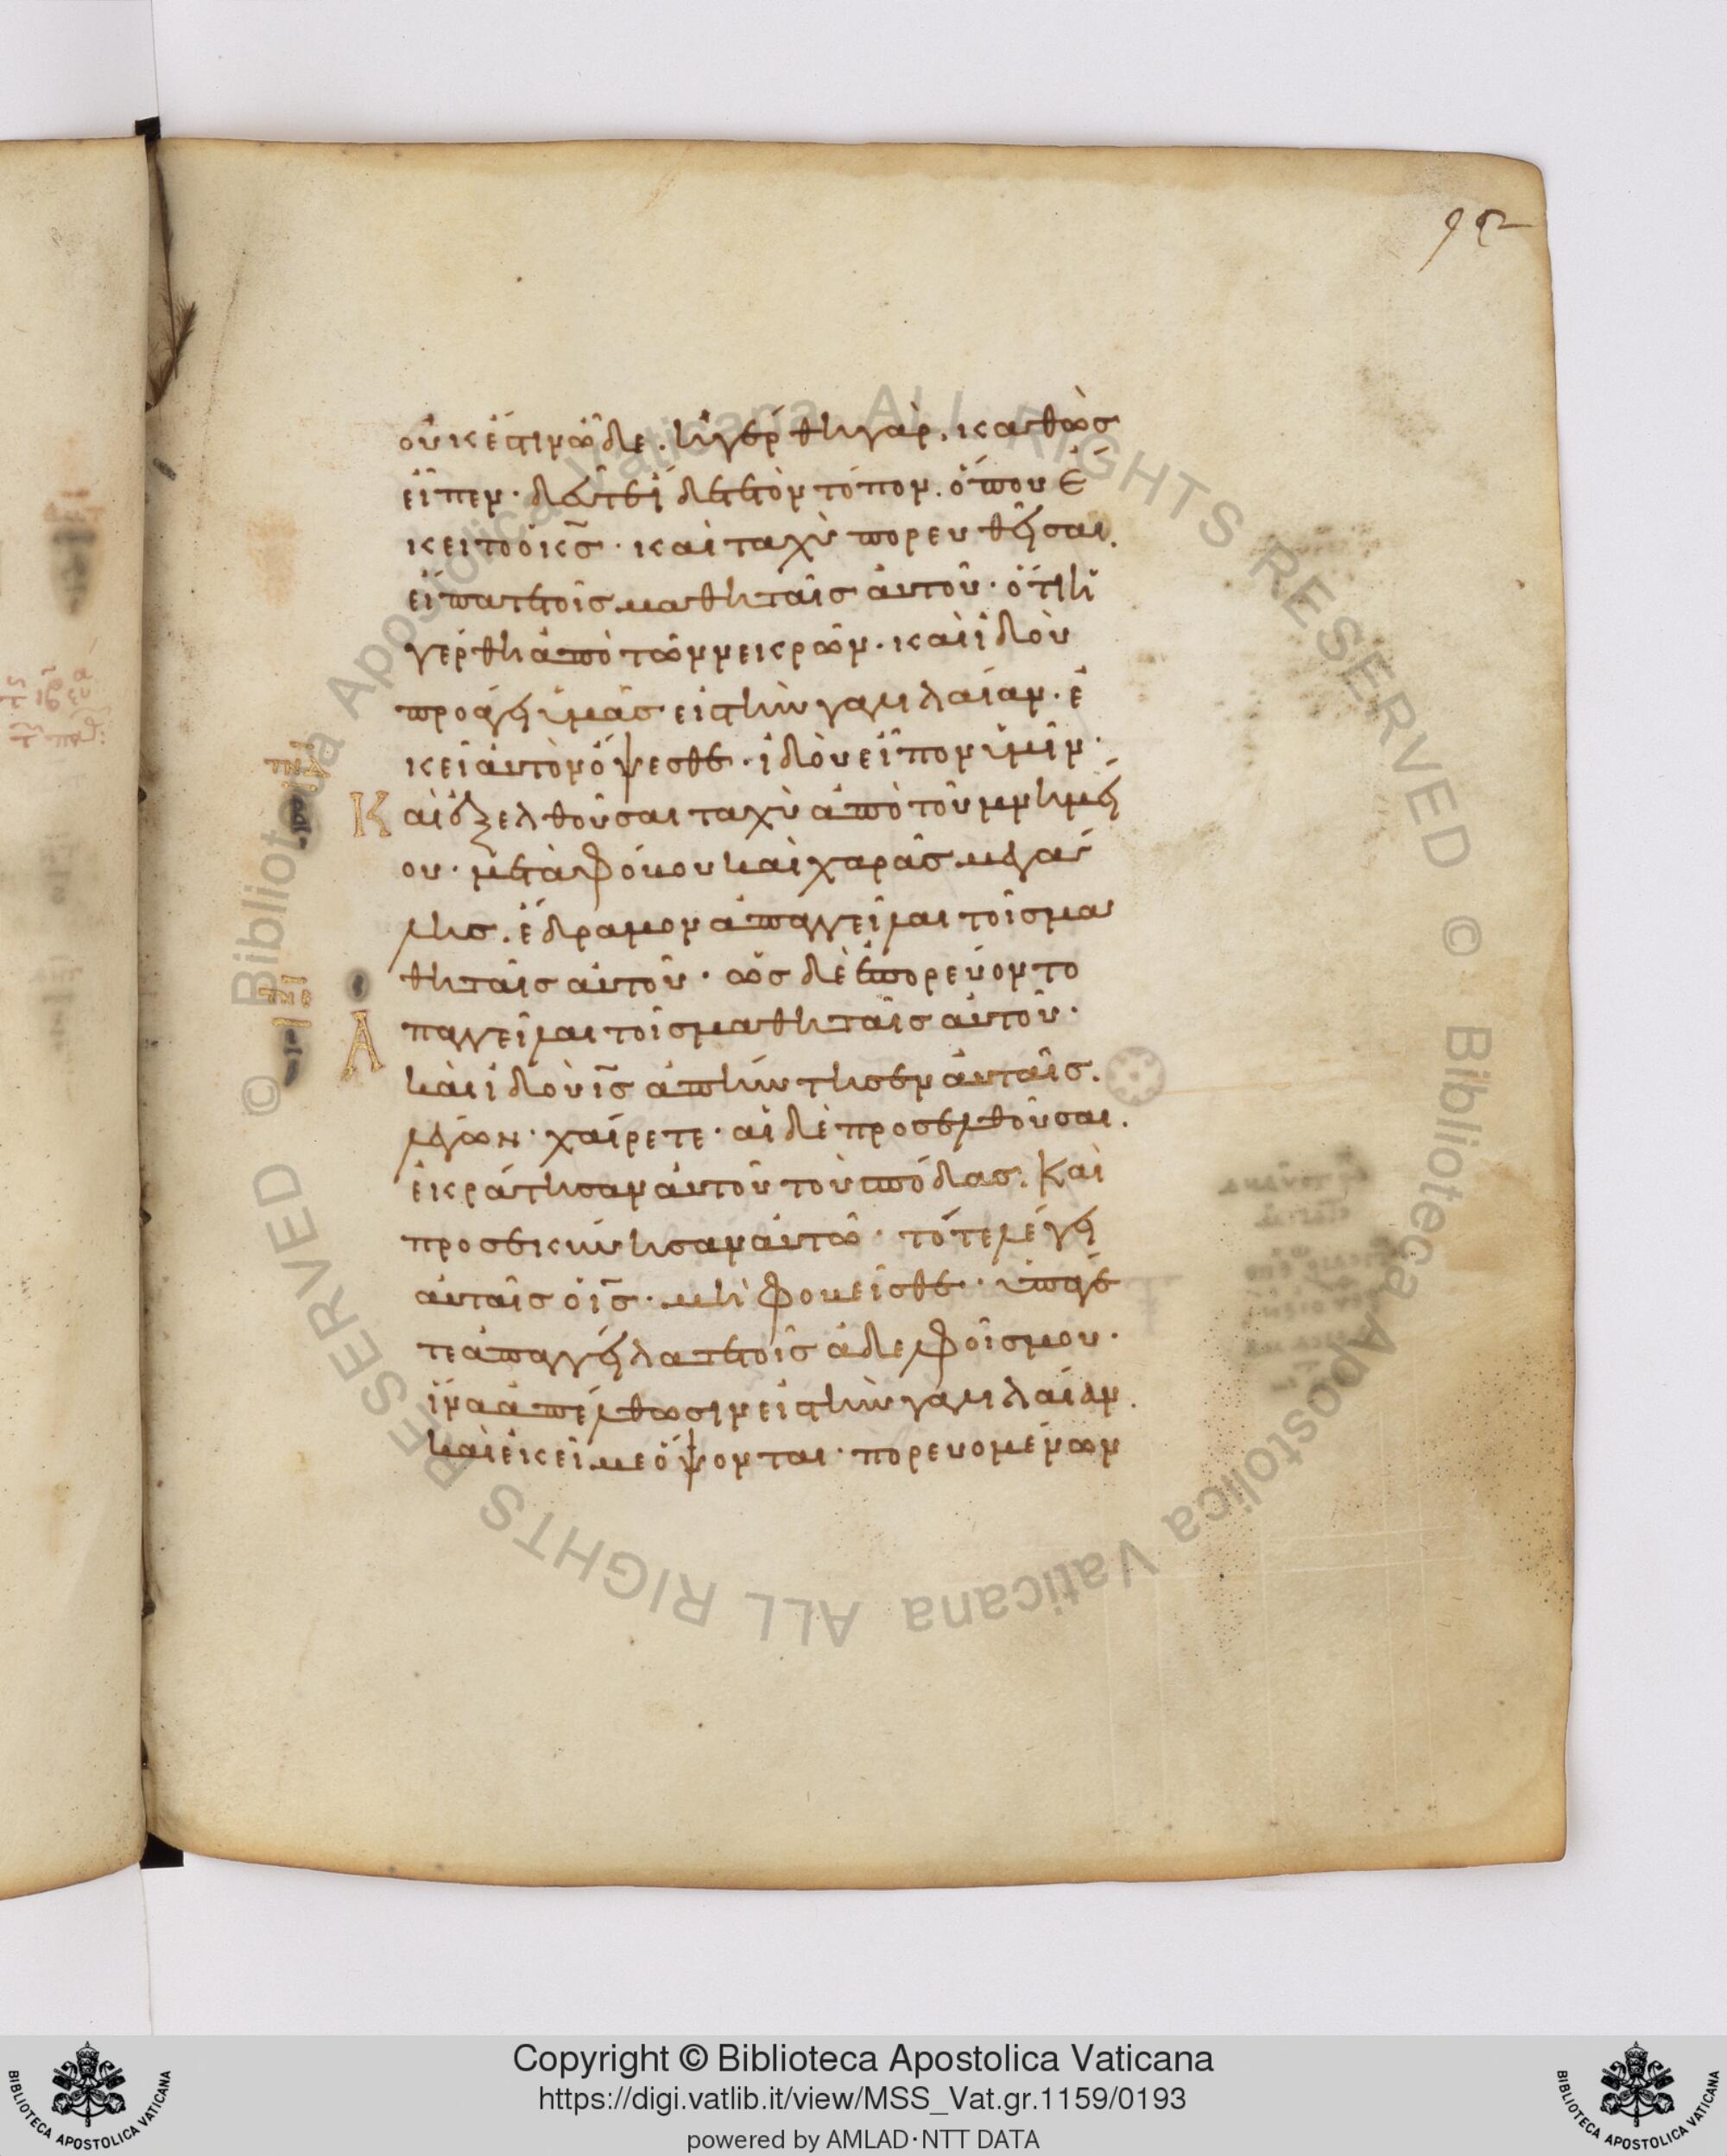 ϙϛ
οὐκ ἔστιν ὧδε. ἠγέρθη γὰρ. καθὼς
εἶπεν· δεῦτε ἴδετε τὸν τόπον. ὅπου ἔ
κειτο ὁ κ̅ς̅· καὶ ταχὺ πορευθῆσαι.
εἴπατε τοῖς μαθηταῖς αὐτοῦ· ὅτι ἠ
γέρθη ἀπὸ τῶν νεκρῶν· καὶ ἰδοὺ
προάγει ὑμᾶς εἰς τὴν γαλιλαίαν· ἐ
κεῖ αὐτὸν ὄψεσθε· ἰδοὺ εἶπον ὑμῖν·
Καὶ ἐξελθοῦσαι ταχὺ ἀπὸ τοῦ μνημεί
ου· μετὰ φόβου καὶ χαρᾶς μεγά
λης. ἔδραμον ἀπαγγεῖλαι τοῖς μα
θηταῖς αὐτοῦ· ὡς δὲ ἐπορεύοντο
Ἀπαγγεῖλαι τοῖς μαθηταῖς αὐτοῦ·
καὶ ἰδοὺ ι̅ς̅ ἀπήντησεν αὐταῖς.
λέγων· χαίρετε· αἱ δὲ προσελθοῦσαι.
ἐκράτησαν αὐτοῦ τοὺς πόδας. καὶ
προσεκύνησαν αὐτῶ· τότε λέγει
αὐταῖς ὁ ι̅ς̅· μὴ φοβεῖσθε· ὑπάγε
τε ἀπαγγείλατε τοῖς ἀδελφοῖς μου·
ἵνα ἀπέλθωσιν εἰς τὴν γαλιλαίαν.
καὶ ἐκεῖ με ὄψονται· πορευομένων
Copyright © Biblioteca Apostolica Vaticana
https://digi.vatlib.it/view/MSS_Vat.gr.1159/0193
powered by AMLAD·NTT DATA
BIBLIOTECA APOSTOLICA VATICANA
BIBLIOTECA APOSTOLICA VATICANA
© Biblioteca Apostolica Vaticana ALL RIGHTS RESERVED © Biblioteca Apostolica Vaticana ALL RIGHTS RESERVED